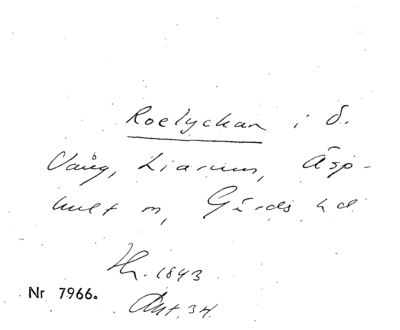 Roelyckan i Ö.
Vång, Liarum, Äsp-
hult sn, Gärds hd
Hr. 1843
Nr 7966.
Akt. 34